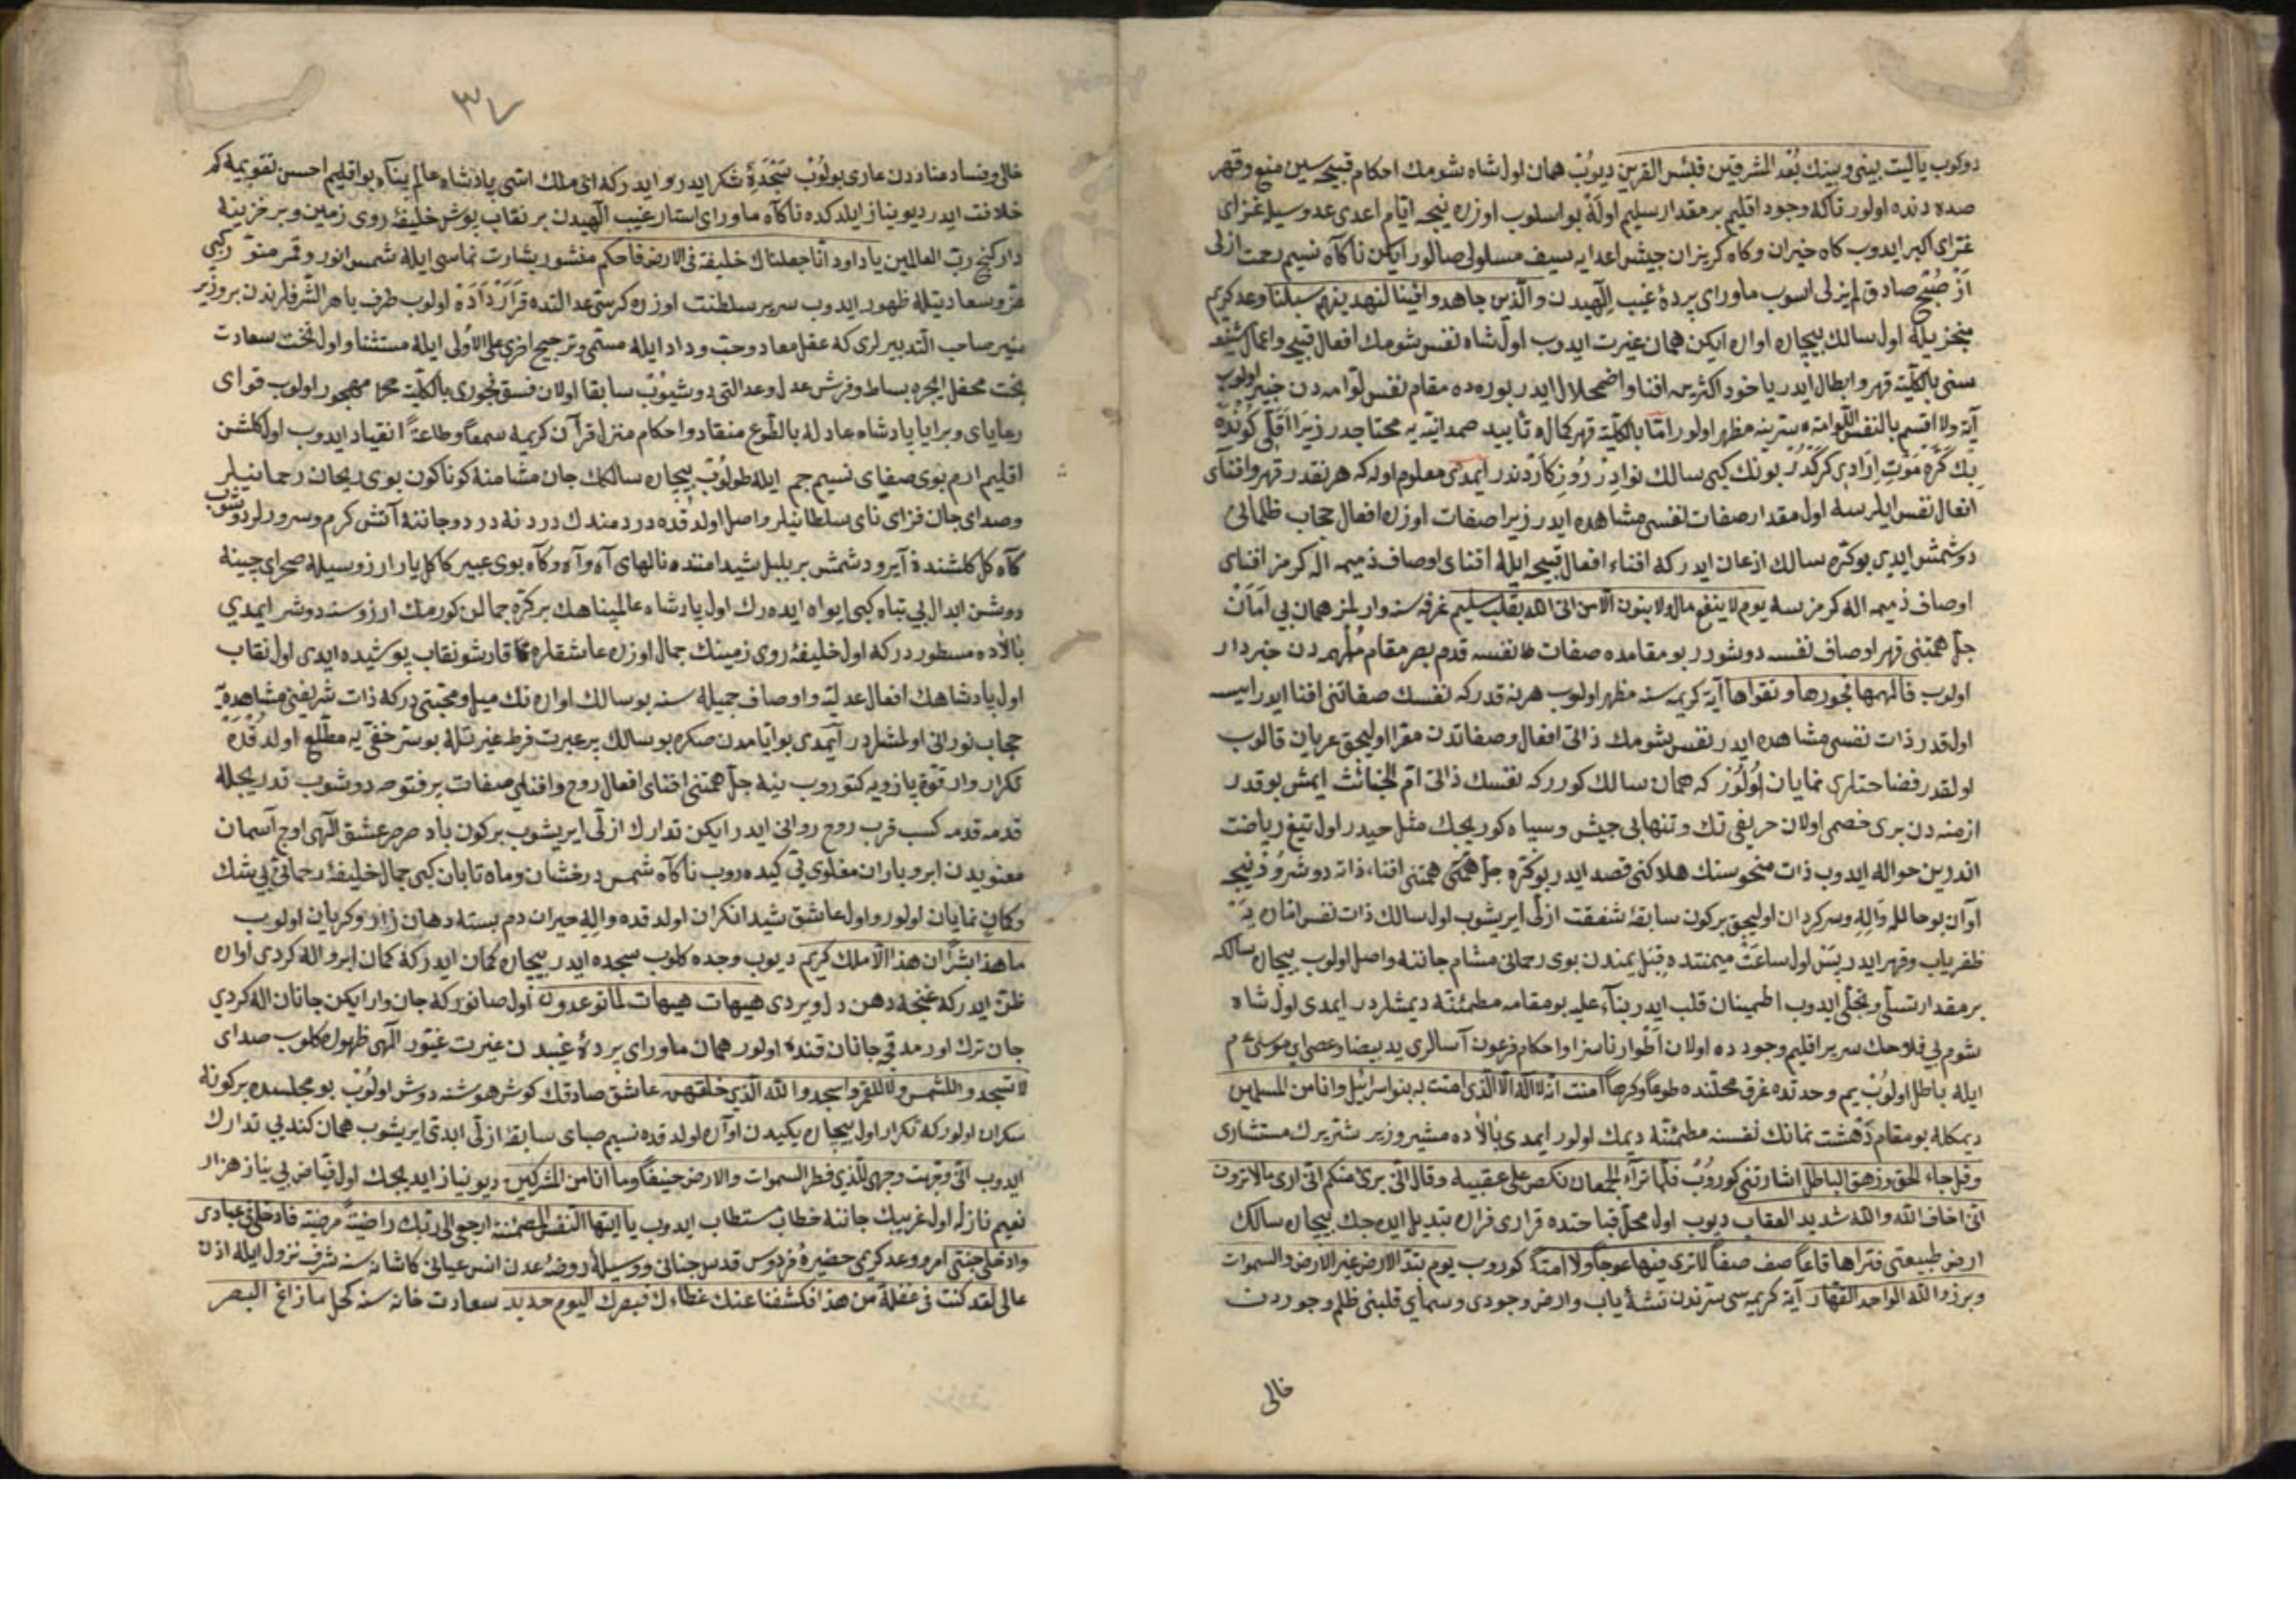 دوكوب ياليت بيني وبينك بعد المشرقين فبئس القرين ديوب همان اول شاه شومك احكام قبيحه سين منع وقهر
صده دنده اولور تاكه وجود اقليم بر مقدار سليم اوله بو اسلوب اوزره نيجه ايام اعدى عدو سيله غزاى
غزاى اكبر ايدوب كاه خيزان وكاه كريزان جيش اعدايه سيف مسلولى صالور ايكن ناكاه نسيم رحمت ازلى
از صبح صادق لم يزلى اسوب ماوراى پردۀ غيب الهيدن والذين جاهدوا فينا لنهدينهم سبلنا وعد كريم
منجزيله اول سالك بيچاره اوان ايكن همان غيرت ايدوب اول شاه نفس شومك افعال قبيح واعمال
سنى بالكليه قهر وابطال ايدر ياخود اكثريه افنا واضمحلال ايدر بوره ده مقام نفس لوامه دن خبير اولوب
آية ولا اقسم بالنفس اللوامه سرينه مظهر اولور اما بالكليه قهر كماله تأييد صمدانيه يه محتاجدر زيرا اقلى كونده
بك كره موت ارادى كركدر بونك كبى سالك نوادر روزكاردندر ايمدى معلوم اوله كه هر نقدر قهر وافناى
افعال نفس ايلرسه اول مقدار صفات نفسى مشاهده ايدر زيرا صفات اوزره افعال حجاب ظلمانى
دوشمش ايدى بو كره سالك اذعان ايدر كه افناء افعال قبيحه ايله افناى اوصاف ذميمه اله كرمز افناى
اوصاف ذميمه اله كرمزسه يوم لا ينفع مال ولا بنون الا من اتى الله بقلب سليم غرفه سنه وارلمز همان بى امان
جل همتنى قهر اوصاف نفسه دوشورر بو مقامده صفات نفسه قدم بصر مقام ملهمه دن خبردار
اولوب فالهمها فجورها وتقواها آية كريمه سنه مظهر اولوب هر نه قدر كه نفسك صفاتنى افنا ايدرايسه
اولقدر ذات نفسى مشاهده ايدر نفس شومك ذاتى افعال وصفاتدن مقرا اوليجق عريان قالوب
اولقدر فضاحتلرى نمايان اولور كه همان سالك كورر كه نفسك ذاتى ام الخبائث ايمش بو قدر
ازمنه دن برى خصمى اولان حريفى تك وتنها بى جيش وسپاه كوريجك مثل حيدر اول تيغ رياضت
اندرين حواله ايدوب ذات منحوسنك هلاكنى قصد ايدر بو كره جل همتى همتنى افناء ذاته دوشرور نيجه
اوان بو حالله واله وسركردان اوليجق بركون سابقۀ شفقت ازلى ايريشوب اول سالك ذات نفس اماره يه
ظفرياب وقهر ايدر پس اول ساعت ميمنتده قبل يمندن بوى رحمانى مشام جاننه واصل اولوب بيچاره سالكه
بر مقدار تسلّى وتجلّى ايدوب اطمينان قلب ايدر بناء عليه بو مقامه مطمئنه ديمشلردر ايمدى اول شاه
شوم بى فلاحك سرير اقليم وجودده اولان اطوار ناسزا واحكام فرعون آسالرى يد بيضا وعصاى موسى
ايله باطل اولوب يم وحدتده غرق محلنده طوعا وكرها آمنت انه لا اله الا الذى امنت به بنو اسرائيل وانا من المسلمين
ديمكله بو مقام دهشت نمانك نفسنه مطمئنه ديمك اولور ايمدى بالاده مشير وزير شتريرك مستشارى
وقل جاء الحق وزهق الباطل اشارتنى كوروب فلما تراء الجمعان نكص على عقبيه وقال انى برئ منكم انى ارى ما لا ترون
انى اخاف الله والله شديد العقاب ديوب اول محل قباحتده قرارى فراره تبديل ايده جك بيچاره سالك
ارض طبيعتى فتراها قاعا صف صفا لا ترى فيها عوجا ولا امتا كوروب يوم تبدل الارض غير الارض والسموات
وبرزوا لله الواحد القهار آية كريمه سى سرندن نشئه ياب وارض وجودى وسماى قلبنى ظلم وجوردن
خالى
٣٧
خالى وفساد عنادن عارى بولوب سجدۀ شكر ايدر وايدر كه الهى ملك انتى پادشاه عالم پناه بو اقليم احسن تقويمه كم
خلافت ايدر ديو نياز ايلدكده ناكاه ماوراى استار غيب الهيدن بر نقاب پوش خليفۀ روى زمين وبر خزينه
دار كنج رب العالمين يا داود انا جعلناك خليفة فى الارض فاحكم منشور بشارت نماسى ايله شمس انور وقمر منور كبى
عز وسعادتيله ظهور ايدوب سرير سلطنت اوزره كرسئ عدالتده قرارداده اولوب طرف باهر الشرفلرندن بر وزير
منير صاحب التدبيرلرى كه عقل معاد وحب وداد ايله مسمى وترجيح اخرى على الاولى ايله مستثنا واول تخت سعادت
بخت محفل ايچره بساط وفرش عدل وعدالتى دوشيوب سابقا اولان فسق فجورى بالكليه محو مهجور اولوب قواى
رعاياى وبراياى پادشاه عادله بالطوع منقاد واحكام منزل قرآن كريمه سمعا وطاعة انقياد ايدوب اول كلشن
اقليم ارم بوى صفاى نسيم جم ايله طولوب بيچاره سالكك جان مشامنه كوناكون بوى ريحان رحمانيلر
وصداى جان فزاى ناى سلطانيلر واصل اولدقده دردمندك دردنه درد وجاننه آتش كرم وسرورلر دوشوب
كاه كل كلشنده آيرو دشمش بر بلبل شيدا مثنده نالهاى آه وآه وكاه بوى عبير كاكل يار ارزوسيله صحراى چينه
دوشن ابدال بى تباه كبى ايواه ايده رك اول پادشاه عالمپناهك بر كره جمالن كورمك ارزوسنه دوشر ايمدى
بالاده مسطوردر كه اول خليفۀ روى زمينك جمال اوزره عاشقلره قارشو نقاب پوشيده ايدى اول نقاب
اول پادشاهك افعال عدليه واوصاف جميله سنه بو سالك اوانك ميل ومحبتى در كه ذات شريفنى مشاهديه
حجاب نورانى اولمشلردر ايمدى بو ايامدن صكره بو سالك پر عبرت فرط غيرتله بو سر خفى يه مطلع اولدقده
تكرار وار قوة بازويه كتوروب ينه جل همتنى افناى افعال روح وافناى صفات پر فتوحه دوشوب تدريجله
قدمه قدمه كسب قرب روح روانى ايدر ايكن تدارك ازلى ايريشوب بركون باد صرصر عشق الهى اوج آسمان
معنويدن ابر وباران مغلوى يى كيده روب ناكاه شمس درخشان وماه تابان كبى جمال خليفۀ رحمانى بى شك
وكان نمايان اولور واول عاشق شيدا نكران اولدقده واله حيران دم بسته دهان زار وكريان اولوب
ما هذا بشرا ان هذا الا ملك كريم ديوب وجده كلوب سجده ايدر بيچاره كمان ايدر كه كمان ابرو اله كردى اوان
ظن ايدر كه غنچه دهن دل ويردى هيهات هيهات لما توعدون اول صانور كه جان وار ايكن جانان اله كردى
جان ترك اورمدقجه جانان قنده اولور همان ماوراى پردۀ غيبدن غيرت غيور الهى ظهوله كلوب صداى
لا تسجدوا للشمس ولا للقمر واسجدوا لله الذى خلقهن عاشق صادقك كوش هوشنه دوش اولوب بو مجلسده بركونه
سكران اولور كه تكرار اول بيچاره يكيدن اوان اولدقده نسيم صباى سابقۀ ازلى ابدى ايريشوب همان كندى تدارك
ايدوب انى وجهت وجهى للذى فطر السموات والارض حنيفا وما انا من المشركين ديو نياز ايديجك اول فياض بى نياز هزار
نعيم نازله اول غريبك جاننه خطاب مستطاب ايدوب يا ايتها النفس المطمئنه ارجعى الى ربك راضية مرضيه فادخلى فى عبادى
وادخلى جنتى امر ووعد كريمى حضيرۀ فردوس قدس جنانى ووسيلۀ روضۀ عدن انس عيانى كاشانه سنه شرف نزول ايله اذن
عالى لقد كنت فى غفلة من هذا فكشفنا عنك غطاءك فبصرك اليوم حديد سعادت خانه سنه كحل ما زاغ البصر